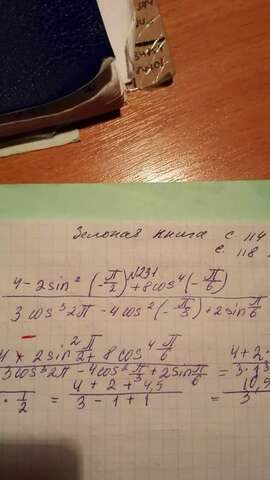 Зелоная книга с 114
с. 118
№231
4-2sin²(-π/2)+8cos⁴(-π/6)
3cos³2π-4cos²(-π/3)+2sin π/6
2sin²π/2+8cos⁴π/6
4+2
3cos³2π-4cos²π/3+2sin π/6 =
3·1³
· 1/2 = 4+2+4,5 / 3-1+1 = 10,5 / 3